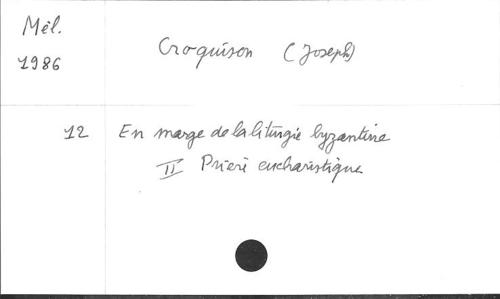 Mél.
1986
Croquison (Joseph)
12 En marge de la liturgie byzantine
II Prière eucharistique